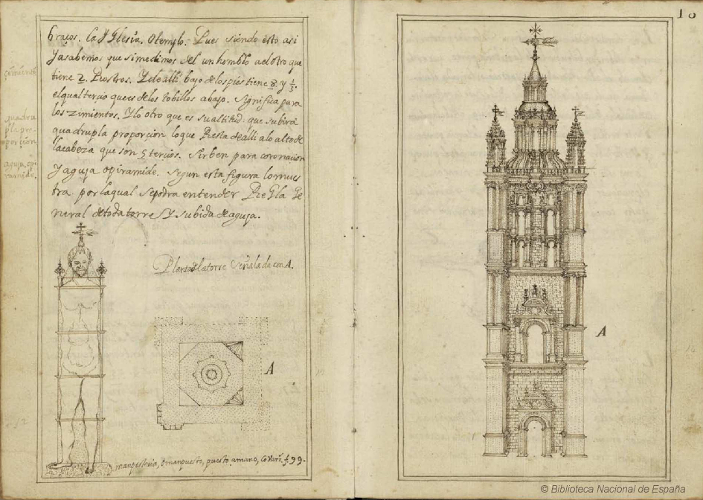 braços. la Yglesia. O templo: Pues siendo esto asi
Ya sabemos que si medimos del un hombro ael otro que
tiene 2. Rostros. Y de alli bajo de los pies tiene 8. y 1/3.
el qual tercio que es de los tobillos abajo. Significa para
los zimientos. Y lo otro que es su altitud. que subira
quadrupla proporcion lo que Hasta de alli a lo alto de
la cabeza que son 5 tercios. Sirben para coronacion
Y aguja o piramide. Segun esta figura lo mues
tra por la qual se podra entender Regla Ge
neral de toda torre. Y subida de aguja.
Planta de la torre Señalada con A.
A
18
A
© Biblioteca Nacional de España